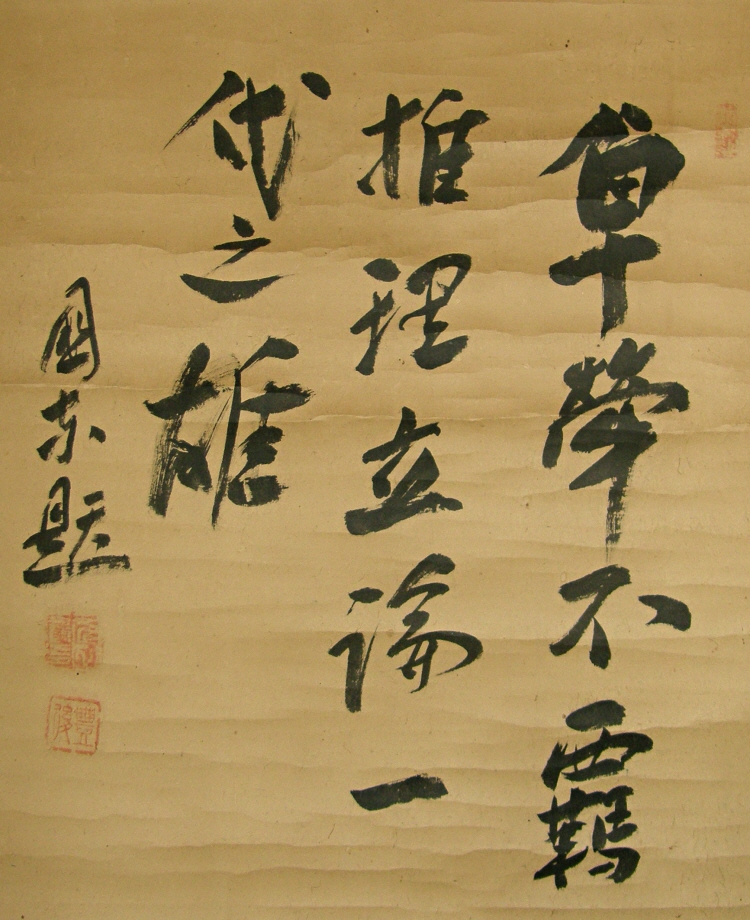 卓犖不覊
推理立論一
代之雄
國东題